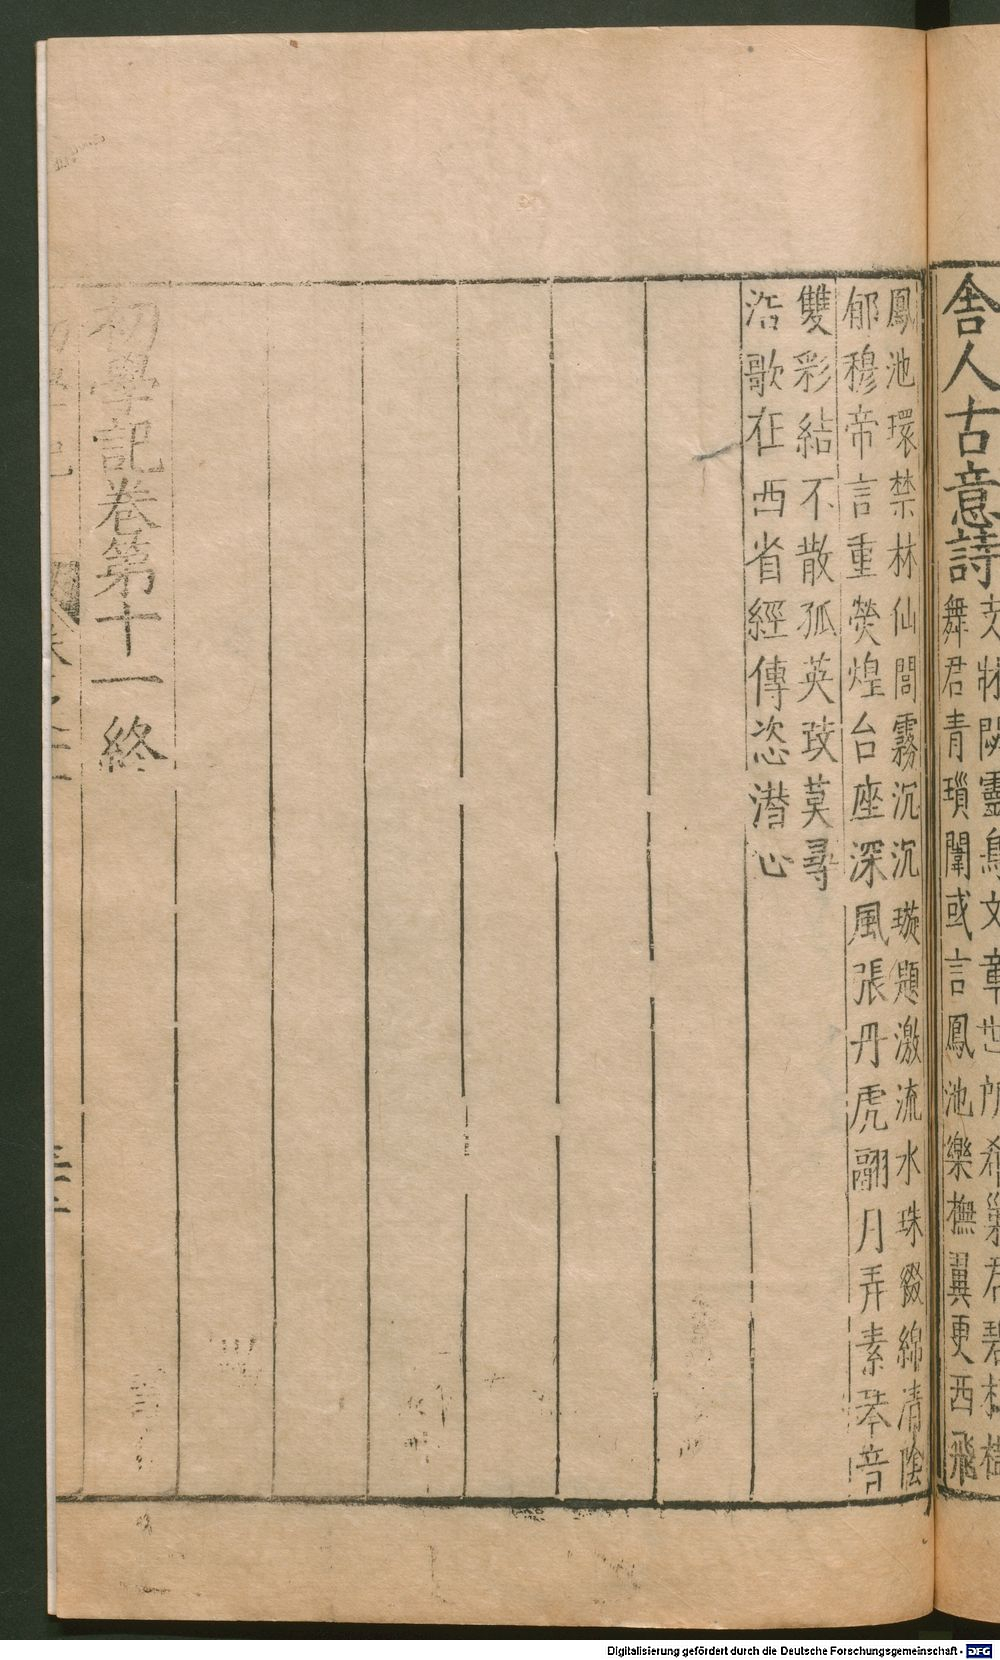 舍人古意詩
舞君青瑣闈或言鳳池樂撫翼更西飛
鳳池環禁林仙閣霧沉沉璇題激流水珠綴綿清陰
郁穆帝言重熒煌台座深風張丹虎翮月弄素琴音
雙彩結不散孤英跂莫尋
浩歌在西省經傳恣潛心
初學記卷第十一終
Digitalisierung gefördert durch die Deutsche Forschungsgemeinschaft - DFG